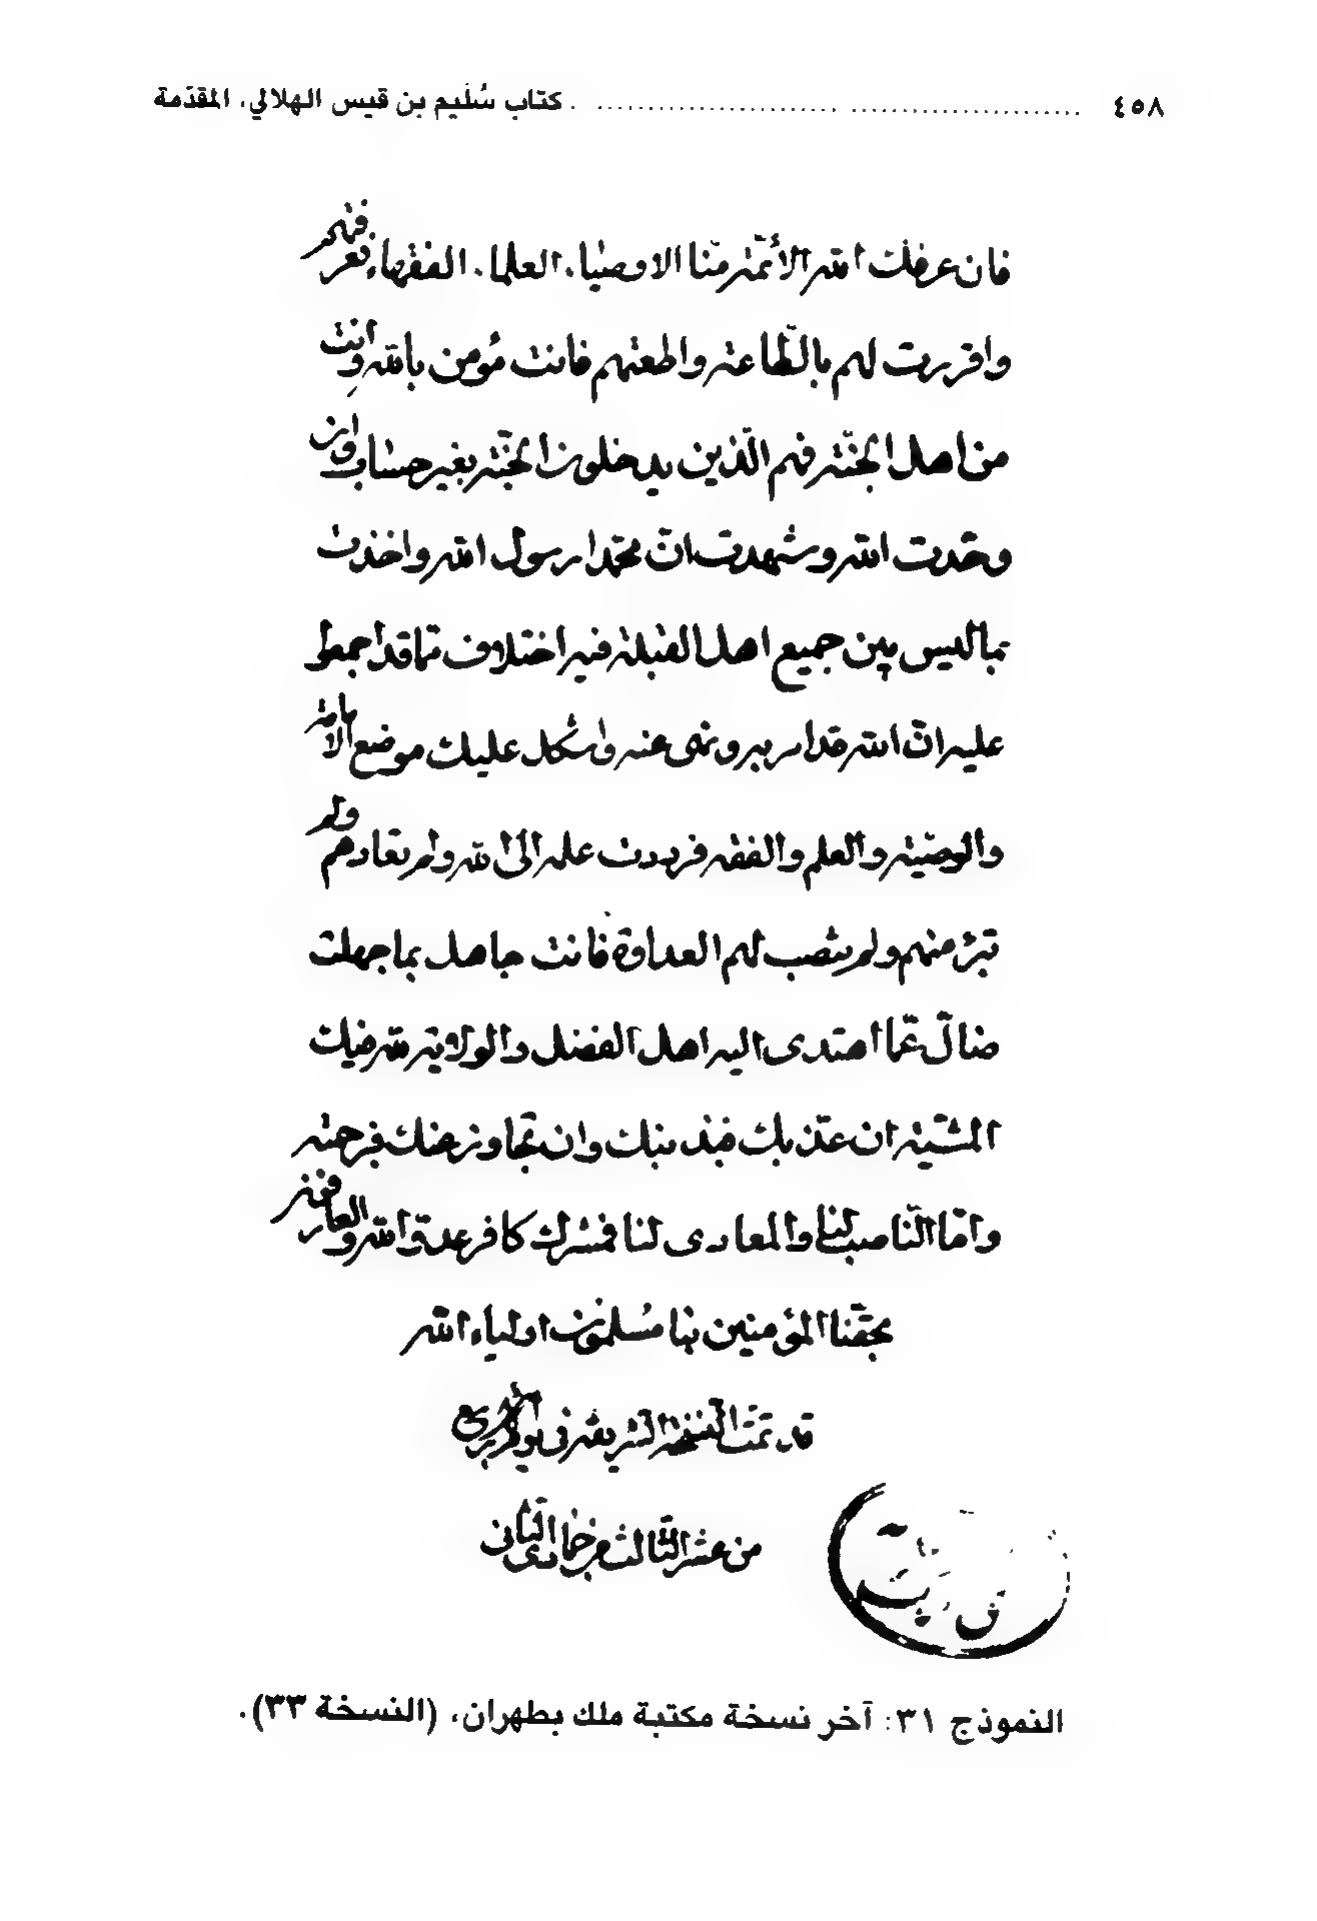 ٤٥٨ ........................ كتاب سُلَيم بن قيس الهلالي، المقدّمة
فان عرفك الله الأئمّة منّا الاوصياء، العلماء، الفقهاء فعرفتهم
واقررت لهم بالطّاعة واطعتهم فانت مؤمن بالله وانت
من اهل الجنّة فهم الّذين يدخلون الجنّة بغير حساب وان
وحّدت الله وشهدت انّ محمّدا رسول الله واخذت
بما ليس بين جميع اهل القبلة فيه اختلاف ممّا قد اجمعوا
عليه انّ الله قد امر به ونهى عنه واشكل عليك موضع الامامة
والوصيّة والعلم والفقه فرددت علمه الى الله ولم تعادهم ولم
تبرّء منهم ولم تنصب لهم العداوة فانت جاهل بما جهلت
ضالّ عمّا اهتدى اليه اهل الفضل والولاية لله فيك
المشيّة ان عذّبك فبذنبك وان تجاوز عنك فبرحمته
وامّا النّاصب لنا والمعادى لنا فمشرك كافر عدوّ الله والعارفون
بحقّنا المؤمنين بنا مسلمون اولياء الله
قد تمّت النسخة الشريفة فى يوم
من عشر الثّالث من جمادى الثّانى
النموذج ٣١: آخر نسخة مكتبة ملك بطهران، (النسخة ٣٣).